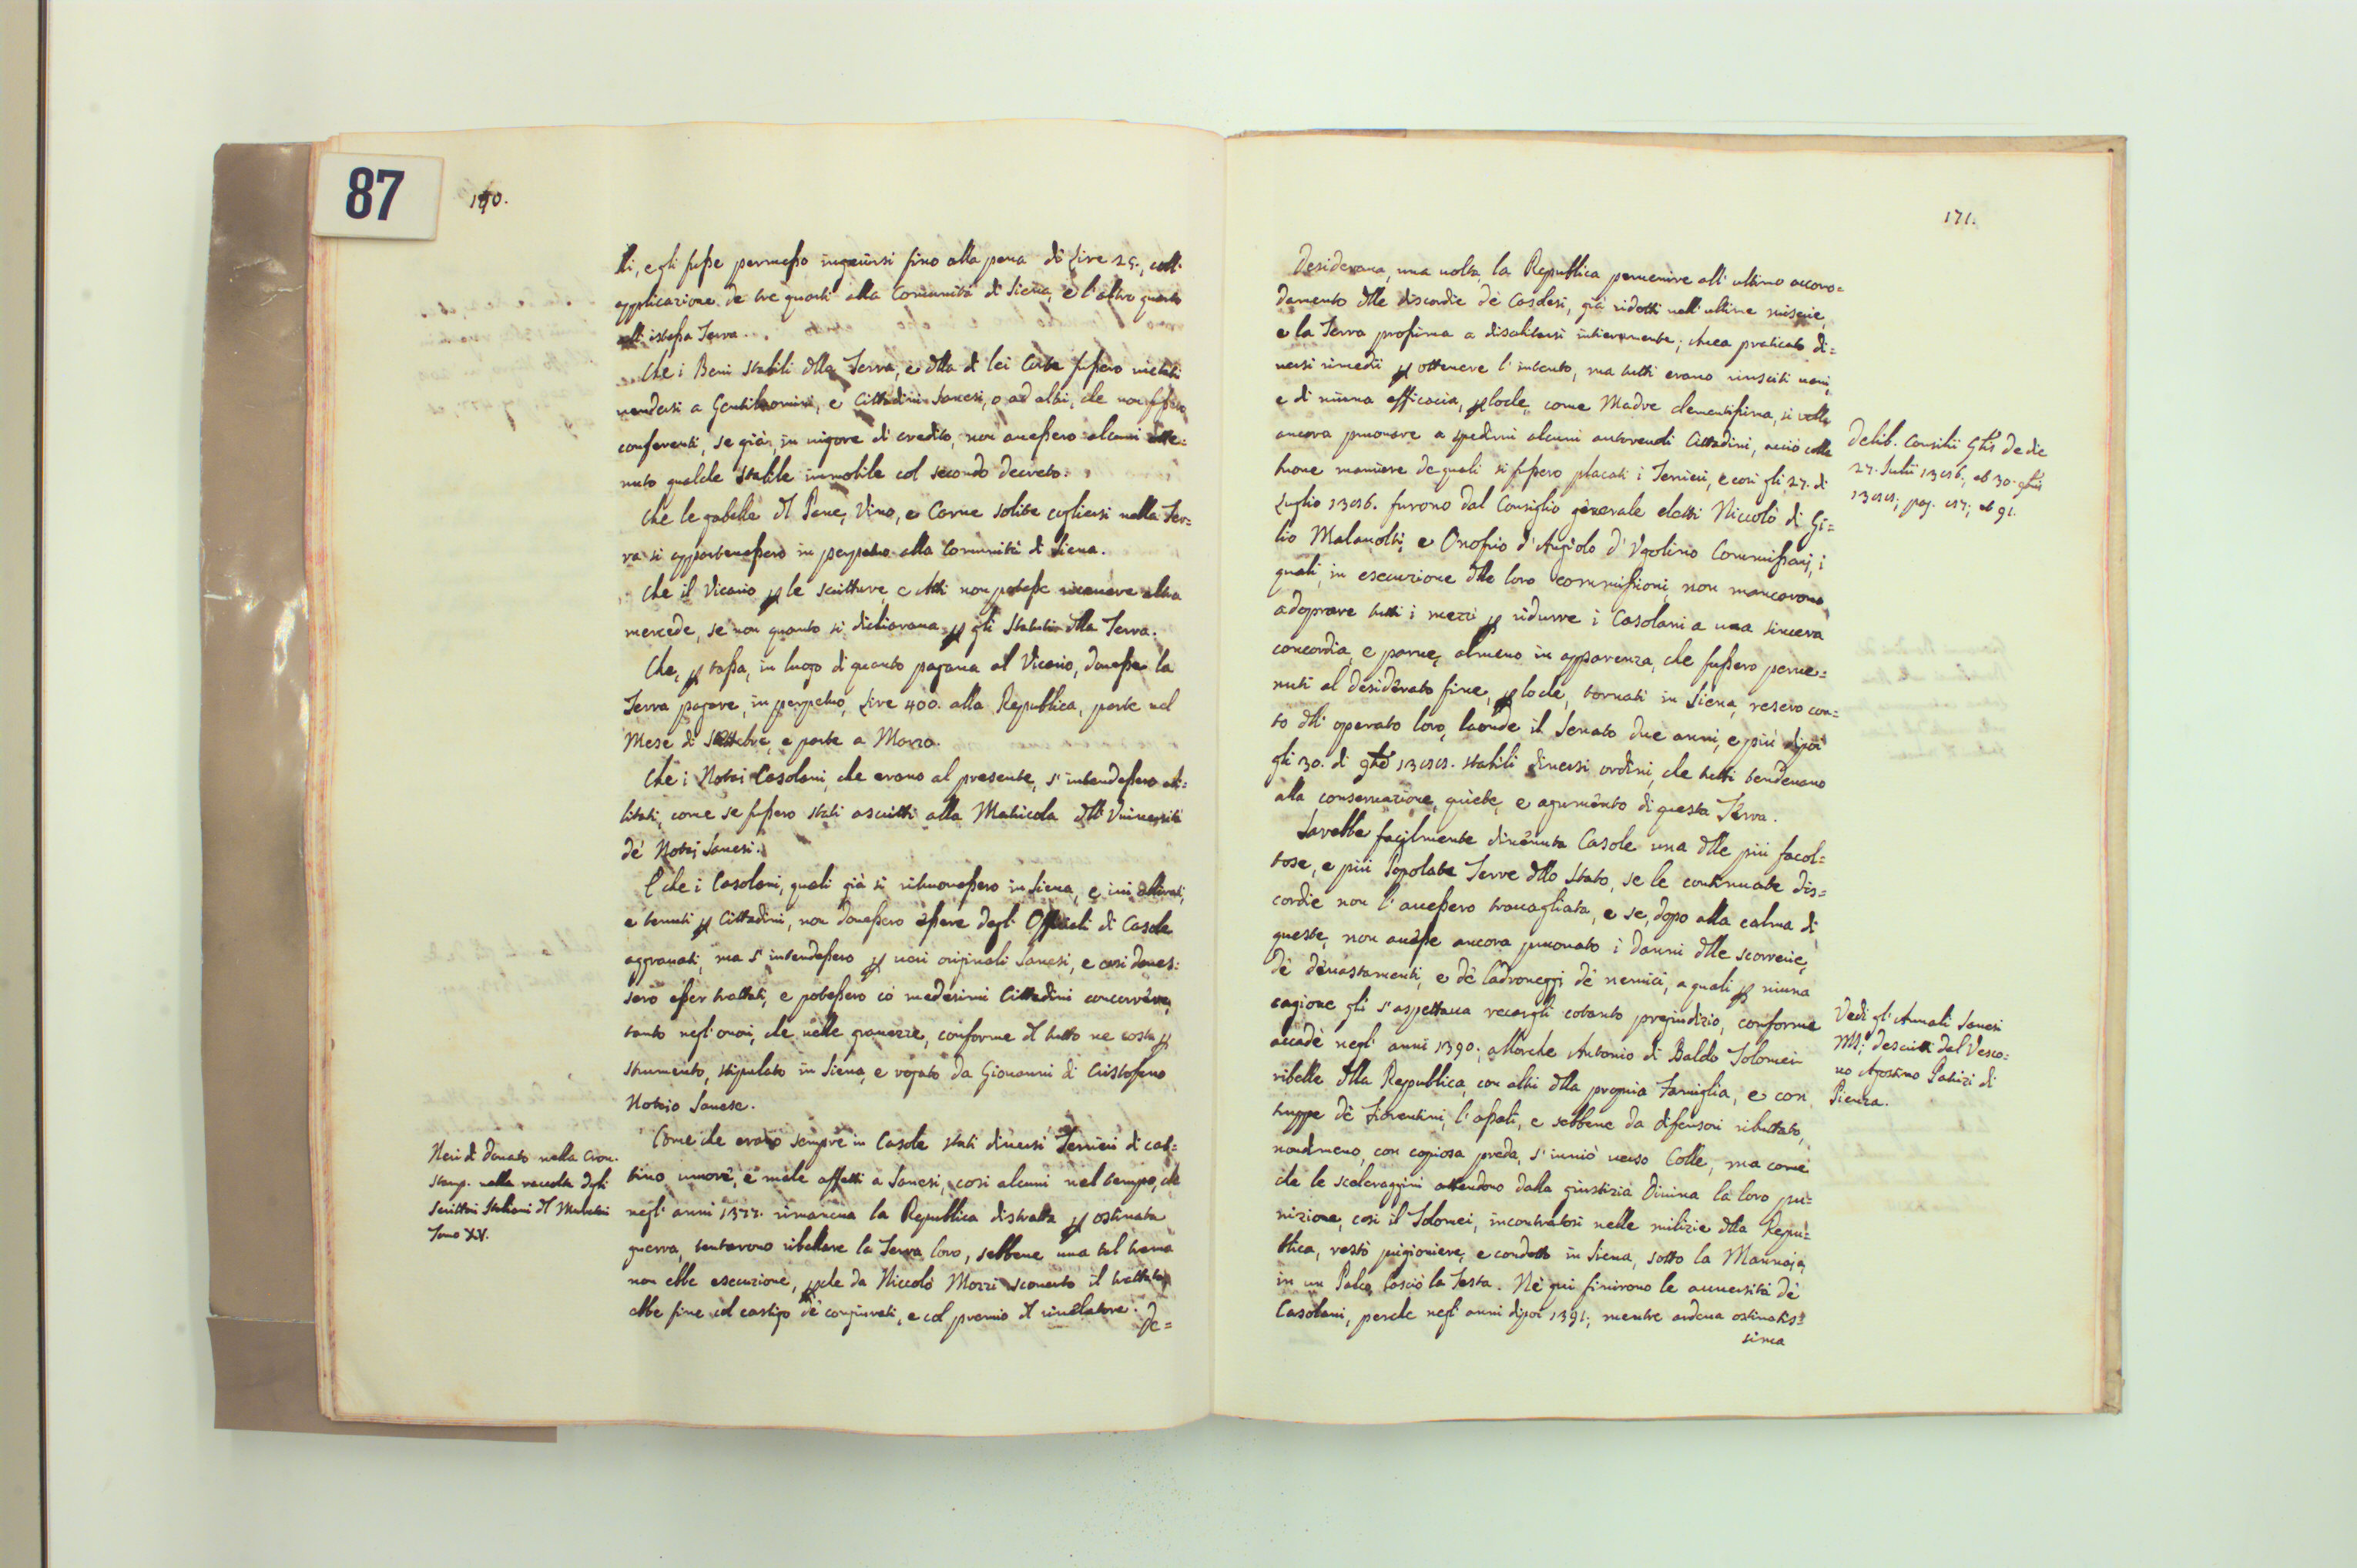 87
170.
li, e gli fusse permesso ingerirsi fino alla pena di Lire 25., coll'
applicazione de tre quarti alla Comunità di Siena, e l'altro quarto
all'istessa Terra.
Che i Beni stabili dlla Terra, e dlla di lei Corte fussero vietati
vendersi a Gentilomini, e Cittadini Sanesi, o ad altri, che non fussero
conferenti, se già, in vigore di credito, non avessero alcuni otte=
nuto qualche stabile immobile col secondo decreto.
Che le gabelle dl Pane, Vino, e Carne solite cogliersi nella Ter=
ra si appartenessero in perpetuo alla Comunità di Siena.
Che il Vicario p le scritture, e Atti non potesse ricevere altra
mercede, se non quanto si dichiarava p gli Statuti dlla Terra.
Che, p tassa, in luogo di quanto pagava al Vicario, dovesse la
Terra pagare, in perpetuo, Lire 400. alla Republica, parte nel
Mese di Settebre, e parte a Marzo.
Che i Notai Casolani, che erano al presente, s'intendessero abi=
litati, come se fussero stati ascritti alla Matricola dll'Università
de' Notaj Sanesi.
E che i Casolani, quali già si ritrovassero in Siena, e ivi allirati,
e tenuti p Cittadini, non dovessero essere degli Offizieli di Casole
aggravati, ma s'intendessero p veri originali Sanesi, e così doves=
sero esser trattati, e potessero co' medesimi Cittadini concorrere,
tanto negl'onori, che nelle gravezze, conforme dl tutto ne costa p
strumento, stipulato in Siena, e rogato da Giovanni di Cristofano
Notaio Sanese.
Come che erano sempre in Casole stati diversi Terrieri di cat=
tivo umore, e male affetti a Sanesi, così alcuni nel tempo, che
negl'anni 1377. rimaneva la Republica distratta p ostinata
guerra, tentarono ribellare la Terra loro, sebbene una tal trama
non ebbe esecuzione, pche da Niccolò Mozzi scoperto il trattato,
ebbe fine col castigo de' congiurati, e col premio dl rivelatore. De=
Neri di Donato nella Cron.
stamp. nella raccolta dgli
Scrittori Italiani dl Muratori
Tomo XV.
171.
Desiderava, una volta, la Republica pervenire all'ultimo accomo=
damento dlle discordie de' Casolesi, già ridotti nell'ultime miserie,
e la Terra prossima a disabitarsi intieramente; Avea praticato di=
versi rimedii p ottenere l'intento, ma tutti erano riusciti vani,
e di niuna efficacia, ploche, come Madre clementissima, si volle
ancora provare a spedirvi alcuni autorevoli Cittadini, acciò colle
buone maniere de quali si fussero placati i Terrieri, e così gli 27. di
Luglio 1386. furono dal Consiglio generale eletti Niccolò di Gi=
lio Malavolti, e Onofrio d'Angiolo d'Ugolino Commissarj, i
quali, in esecuzione dlle loro commissioni, non mancarono
adoprare tutti i mezzi p ridurre i Casolani a una sincera
concordia, e parve, almeno in apparenza, che fussero perve=
nuti al desiderato fine, ploche, tornati in Siena, resero con=
to dll'operato loro, laonde il Senato due anni, e più dipoi
gli 30. di 9bre 1388. stabilì diversi ordini, che tutti tendevano
alla conservazione, quiete, e agumento di questa Terra.
Sarebbe facilmente divenuta Casole una dlle più facol=
tose, e più Popolate Terre dllo Stato, se le continuate dis=
cordie non l'avessero travagliata, e se, dopo alla calma di
queste, non avesse ancora provato i danni dlle scorrerie,
de' devastamenti, e de' ladroneggi de' nemici, a quali p niuna
cagione gli s'aspettava recargli cotanto pregiudizio, conforme
accadè negl'anni 1390., allorche Antonio di Baldo Tolomei
ribelle dlla Republica, con altri dlla propria Famiglia, e con
truppe de' Fiorentini, l'assalì, e sebbene da difensori ributtato,
nondimeno, con copiosa preda, s'inviò verso Colle, ma come
che le sceleraggini attendono dalla giustizia Divina la loro pu=
nizione, così il Tolomei, incontratosi nelle milizie dlla Repu=
blica, restò prigioniere, e condotto in Siena, sotto la Mannaja,
in un Palco, lasciò la Testa. Nè qui finirono le avversità de'
Casolani, perche negl'anni dipoi 1391., mentre ardeva ostinatis=
sima
Delib. Consilii Glis de die
27. Julii 1386., et 30. 9bris
1388., pag. 87., et 91.
Vedi gl'Annali Sanesi
MS; descritti dal Vesco=
vo Agostino Patrizi di
Pienza.